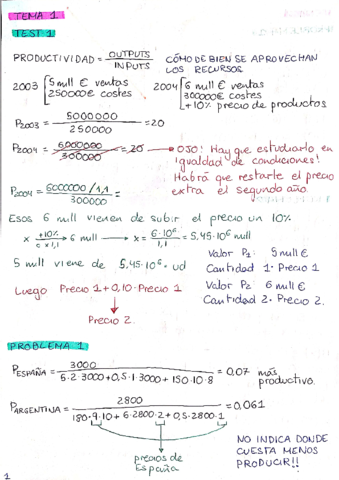 TEMA 1
TEST 1
PRODUCTIVIDAD = OUTPUTS / INPUTS CÓMO DE BIEN SE APROVECHAN LOS RECURSOS
2003 [5 mill € ventas
250000€ costes
2004 [6 mill € ventas
300000€ costes
+10% precio de productos
P2003 = 5000000 / 250000 = 20
P2004 = 6000000 / 300000 = 20 → OJO: Hay que estudiarlo en igualdad de condiciones!
Habrá que restarle el precio extra el segundo año
P2004 = 6000000 / 1,1 / 300000 =
Esos 6 mill vienen de subir el precio un 10%
x +10% → 6 mill → x = 6·10⁶ / 1,1 = 5,45·10⁶ mill
x 1,1
5 mill viene de 5,45·10⁶ ud
Valor P1: 5 mill €
Cantidad 1 · Precio 1
Luego Precio 1 + 0,10 · Precio 1
Valor P2: 6 mill €
Cantidad 2 · Precio 2.
Precio 2
PROBLEMA 1
PESPAÑA = 3000 / 6·2·3000 + 0,5·1·3000 + 150·10·8 = 0,07 más productivo.
PARGENTINA = 2800 / 180·9·10 + 6·2800·2 + 0,5·2800·1 = 0,061
precios de España
NO INDICA DONDE CUESTA MENOS PRODUCIR!!
1